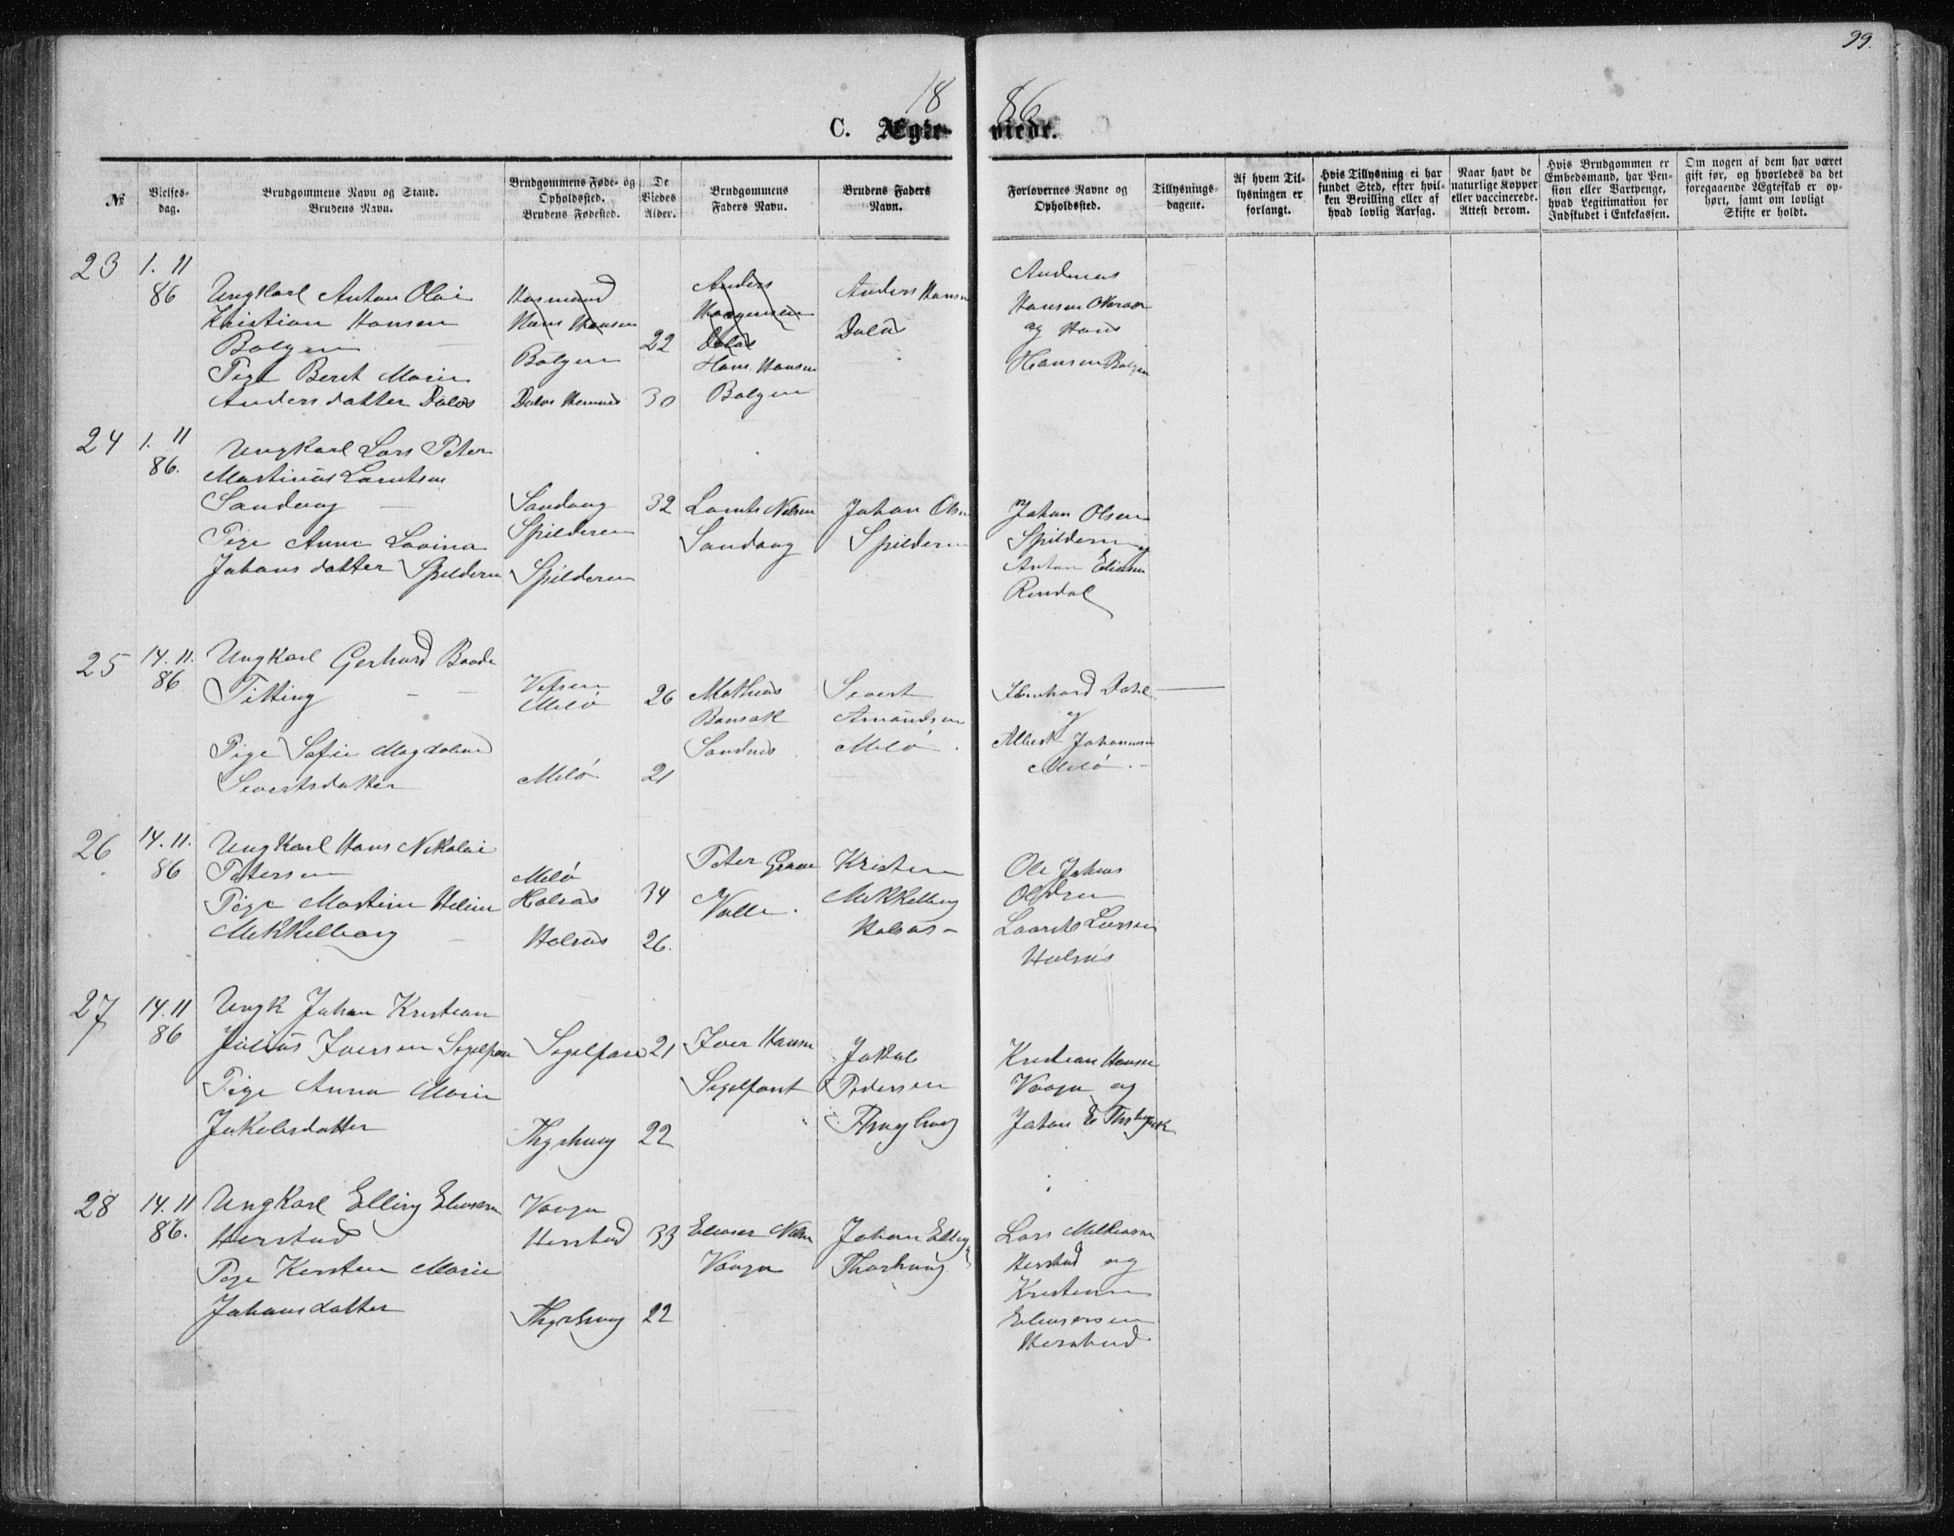 99.
18 86
C. Ægte- viede.
№
Vielses-
dag.
Brudgommens Navn og Stand.
Brudens Navn.
Brudgommens Føde- og
Opholdssted.
Brudens Fødested.
De
Viedes
Alder.
Brudgommens
Faders Navn.
Brudens Faders
Navn.
Forlovernes Navne og
Opholdssted.
Tillysnings-
dagene.
Af hvem Til-
lysningen er
forlangt.
Hvis Tillysning ei har
fundet Sted, efter hvil-
ken Bevilling eller af
hvad lovlig Aarsag.
Naar havt de
naturlige Kopper
eller vaccinerede.
Attest derom.
Hvis Brudgommen er
Embedsmand, har Pen-
sion eller Vartpenge,
hvad Legitimation for
Indskudet i Enkekassen.
Om nogen af dem har været
gift før, og hvorledes da det
foregaaende Ægteskab er op-
hørt, samt om lovligt
Skifte er holdt.
23
1. 11
86
Ungkarl Anton Olai
Kristian Hansen
Bolgen
Pige Berit Marie
Andersdatter Dalos
Hans Hansen
Bolgen
22
30
Anders
Hans Hansen
Bolgen
Anders Hansen
Andreas
Hansen
og Hans
Hansen Bolgen
24
1. 11
86.
Ungkarl Lars Peter
Martinus Lorntsen
Sandvag
Pige Anne Lovina
Johansdatter Spilderen
Sandvag
Spilderen
Spilderen
32
Lornts Nilsen
Sandvag
Johan Olsen
Spilderen
Johan Olsen
Spilderen og
Anton
Rendal
25
14. 11.
86
Ungkarl Gerhard Baade
Titting
Pige Sofie Magdalene
Sivertsdatter
Vefsen
Melø
Melø
26
21
Mathias
Sandnes
Sivert
Amundsen
Melø
Dahl
og
Albert Johannesen
Melø
26
14. 11.
86
Ungkarl Hans Nikolai
Petersen
Pige Martine Heline
Mikkelborg
Melø
Halsaas
Halsaas
34
26.
Peter
Valle
Kristen
Mikkelborg
Halsaas
Ole Johns
Larsen
27
14. 11
86
Ungk Johan Kristian
Julius Iversen Segelfore
Pige Anna Marie
Jakobsdatter
Segelfore
21
22
Iver Hansen
Segelfort
Jakob
Pedersen
Kristian Hansen
Vaagn og
Johan E
28
14. 11
86.
Ungkarl Elling Eliesersen
Herstad
Pige Kersten Marie
Johansdatter
Vaagn
Herstad
33
22
Elieser Nilsen
Vaagn
Johan Elling
Lars Mathiasen
Herstad og
Kristian
Eliesersen
Herstad